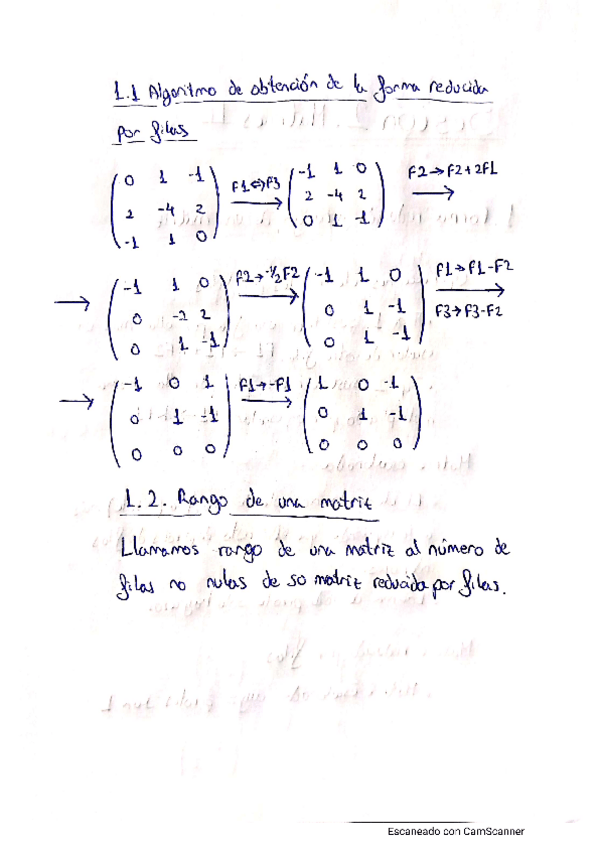 1.1 Algoritmo de obtención de la forma reducida
por filas
0 1 -1
2 -4 2
-1 1 0
F1⇔F3
-1 1 0
2 -4 2
0 1 -1
F2→F2+2F1
-1 1 0
0 -2 2
0 1 -1
F2→-1/2F2
-1 1 0
0 1 -1
0 1 -1
F1→F1-F2
F3→F3-F2
-1 0 1
0 1 -1
0 0 0
F1→-F1
1 0 -1
0 1 -1
0 0 0
1.2. Rango de una matriz
Llamamos rango de una matriz al número de
filas no nulas de so matriz reducida por filas.
Escaneado con CamScanner